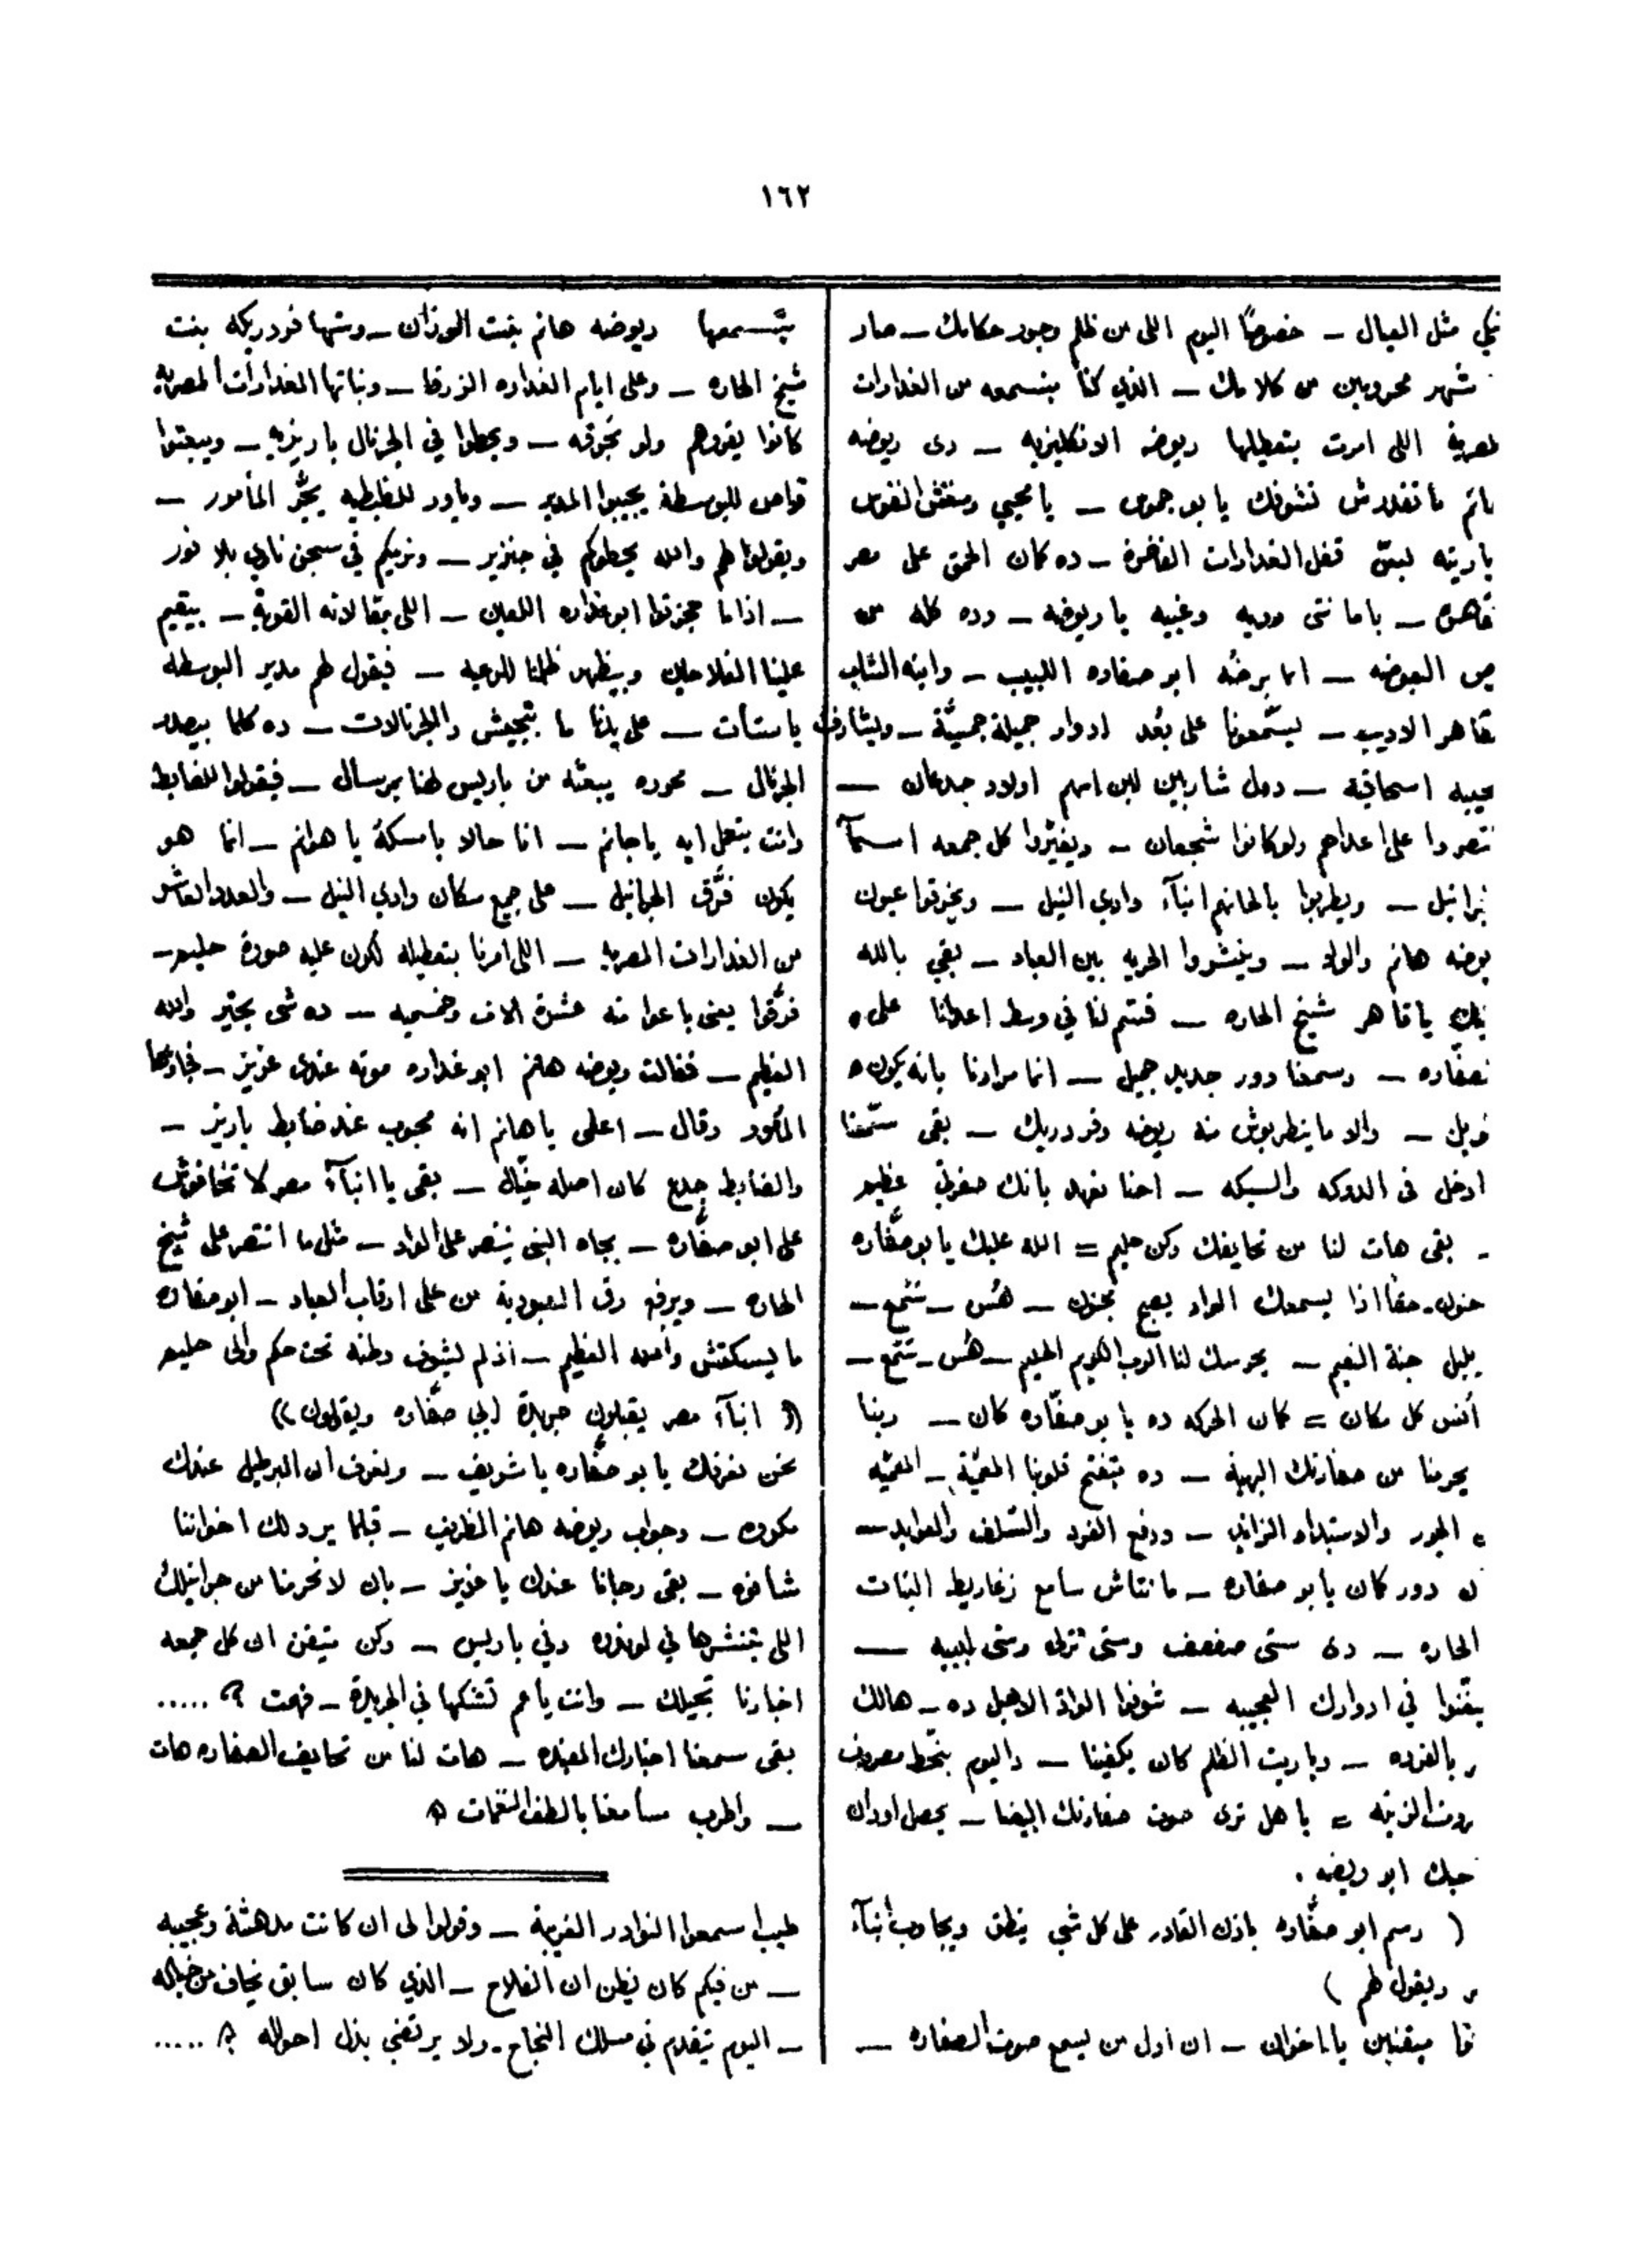 ١٦٢
نبكي مثل العيال ـ خصوصًا اليوم اللى من ظلم وجور حكامك ـ صار
شهر محرومين من كلامك ـ الذي كنا بنسمعه من الغدارات
لمصرية اللى امرت بتعطيلها ريوضه الانكليزيه ـ دى ريوضه
هانم ما تقدرش تشوفك يا بو جموس ـ يا محيي ومنعش النفوس
ياريته لبق قفل الغدارات الفاخرة ـ ده كان الحق على مصر
قاهره ـ ياما نتى رديه وغبيه يا ريوضه ـ وده كله من
العوضه ـ انما برضه ابو صفاره اللبيب ـ وابنه الشاب
قاهر الاديب ـ ليسمعونا على بُعد ادوار جميلة ـ
عجيبه اسحاقية ـ دول شاربين لبن امهم اولاد جدعان ـ
نتصروا على اعداهم ولو كانوا شجعان ـ ويغيروا كل جمعه اسمآ
نرانيل ـ ويطربوا بالحانهم ابنآء وادي النيل ـ ويخزقوا عيون
يوضه هانم والواد ـ وينشروا الحريه بين العباد ـ بقي بالله
يا قاهر شيخ الحاره ـ قتم لنا في وسط اعدانا على
صفّاره ـ وسمعنا دور جديد جميل ـ انما مرادنا بانه يكون
ـ والا ما ينطربوش منه ريوضه وفردريك ـ بقى سمّعنا
ادخل فى الدوكه والسيكه ـ احنا نعهد بانك صفرتي عظيم
ـ بقى هات لنا من تحايفك وكن حليم = الله عليك يا بو صفّاره
حنون ـ حقًا اذا يسمعك الواد يصبح مجنون ـ هُس ـ سمع ـ
بلبل جنة النعيم ـ يحرسك لنا الرب الكريم الحليم ـ هُس ـ سمع ـ
أنس كل مكان = كان الحركه ده يا بو صفّاره كان ـ ربنا
يحرمنا من صفارتك البهية ـ ده بتفتح قلوبنا المعميّة ـ المعميّه
الجور والاستبداد الزائد ـ ودفع الفرد والسلف والعوايد ـ
دور كان يا بو صفاره ـ ما نتاش سامع زغاريط البنات
الحاره ـ دى ستى صفصف وستى نزله وستى لبيبه ـ
يتغنوا في ادوارك العجيبه ـ شوفوا الواد الاهبل ده ـ هالك
بالفرده ـ وياريت الظلم كان يكفينا ـ واليوم بنحط مصروف
الزينه = يا هل ترى صوت صفارتك البيضا ـ يحصل اودان
حبك ابو ريضه .
( رسم ابو صفّاره باذن القادر على كل شي ينطق ويجاوب ابنآء
ويقول لهم )
متيقنين يا اخوان ـ ان اول من يسمع صوت الصفاره ـ
بتسمعها ريوضه هانم بنت الوزان ـ وستها فردريكه بنت
شيخ الحاره ـ وعلى ايام الغداره الزرقا ـ وبناتها الغدارات المصريه
كانوا يقروهم ولو بحُرقه ـ ويحطوا في الجرنال باريزيه ـ ويبعتوا
قواص للبوسطة يجيبوا المدير ـ وياور للظبطيه يجرّ المأمور ـ
ويقولوا لهم والله نحطوكم في جنزير ـ ونرميكم في سجن نادي بلا نور
ـ اذا ما حجزتوا ابو غداره اللعين ـ اللى بمقالاته القوية ـ بيقيم
علينا الفلاحين وبيظهر ظلمنا للرعيه ـ فيقول لهم مدير البوسطه
يا ستات ـ على يدنا ما بتجيش والجرنالات ـ ده كلما بيصدر
الجرنال ـ محرره يبعته من باريس لهنا برسال ـ فيقولوا للضابط
وانت بتعمل ايه يا جانم ـ انا حالا يا مسكه يا هوانم ـ انما هو
يكون فرّق الجرانيل ـ على جميع سكان وادي النيل ـ والعدد العاشر
من الغدارات المصريه ـ اللى امرنا بتعطيله لكون عليه صورة حليم ـ
فرّقوا يعنى باعوا منه عشرة الاف وخمسميه ـ ده شى يحيّر والله
العظيم ـ فقالت ريوضه هانم ابو غداره موته عندى عزيز ـ فجاوبها
المأمور وقال ـ اعلمى يا هانم انه محبوب عند ضابط باريز ـ
والضابط جدع كان اصله خيّال ـ بقى يا ابنآء مصر لا تخافوش
على ابو صفّاره ـ بجاه النبي ينتصر على الواد ـ مثل ما انتصر على شيخ
الحاره ـ ويرفع رق العبودية من على ارقاب العباد ـ ابو صفاره
ما يسكتش والله العظيم ـ اذ لم يشوف وطنه تحت حكم والى حليم
(( ابنآء مصر يقبلون جريدة ابي صفّاره ويقولون ))
نحن نعرفك يا بو صفّاره يا شريف ـ ونعرف ان البرطيل عندك
مكروه ـ وجواب ريوضه هانم الظريف ـ قبلما يرد لك اخواننا
شافوه ـ بقى رجانا عندك يا عزيز ـ بان لا تحرمنا من جرانيلك
اللى بتنشرها في لوندره وفي باريس ـ وكن متيقن ان كل جمعه
اخبارنا تجيلك ـ وانت يا عم تشكها في الجريدة ـ فهمت ؟ .....
بقى سمعنا اخبارك المفيده ـ هات لنا من تحايف الصفاره هات
ـ واطرب مسامعنا بالطف النغمات
طيب اسمعوا النوادر الغريبة ـ وقولوا لى ان كانت مدهشة وعجيبه
ـ من فيكم كان يظن ان الفلاح ـ الذي كان سابق يخاف من خياله
ـ اليوم يتقدم في مسلك النجاح ـ ولا يرتضي بذل احواله ؟ .....